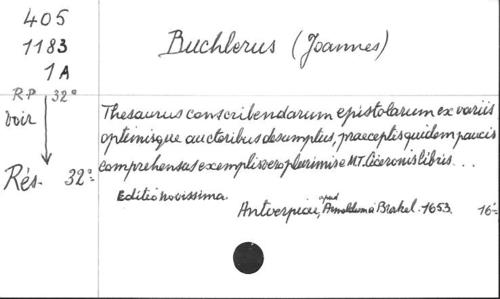 405
1183
1A
R.P 32°
voir
Rés. 32°
Buchlerus (Joannes)
Thesaurus conscribendarum epistolarum ex variis
optimisque auctoribus desumptus, praeceptis quidem paucis
comprehensus exemplis vero plurimis e M.T. Ciceronis libris...
Editio novissima.
Antverpiae, apud Arnoldum a Brakel. 1653. 16°